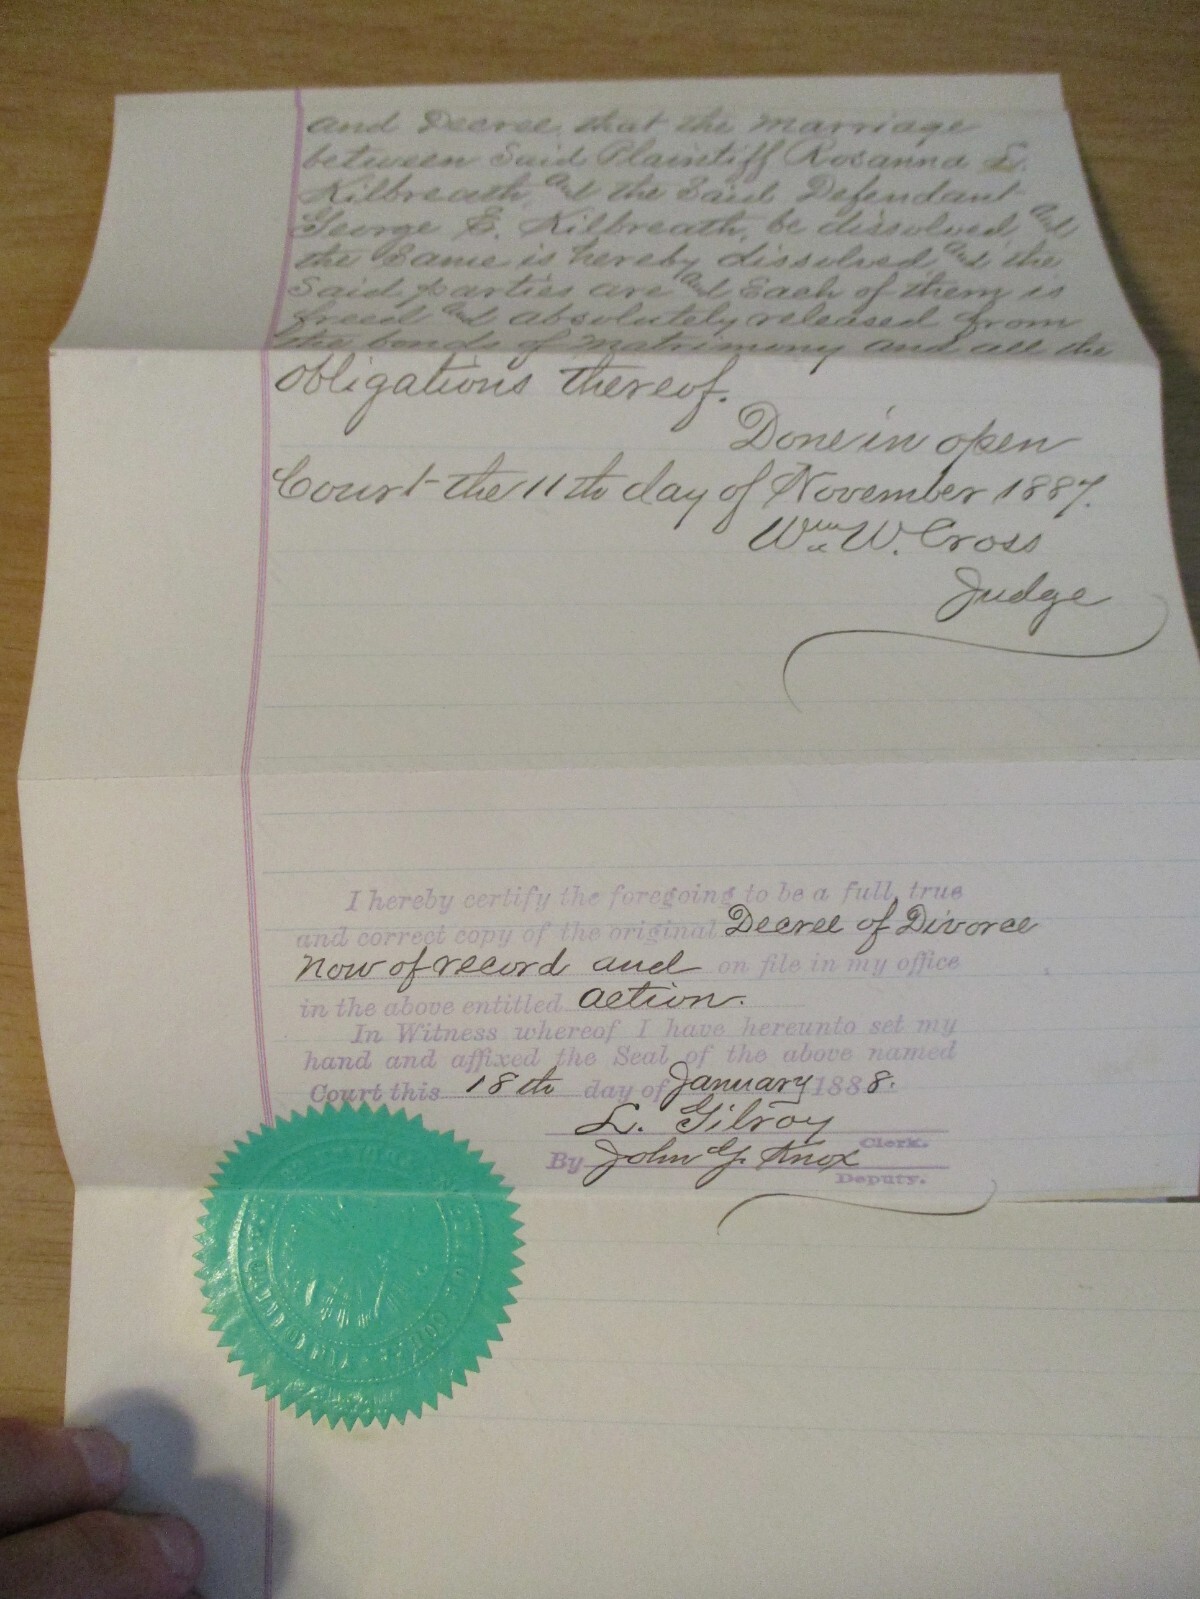 and Decree, that the Marriage
between Said Plaintiff Roxanna L.
Kilbreath, and the Said Defendant
George E. Kilbreath, be dissolved, and
the Same is hereby dissolved, and the
Said parties are and Each of them is
freed and absolutely released from
the bonds of Matrimony and all the
Obligations thereof.
Done in open
Court the 11th day of November 1887.
Wm W. Cross
Judge
I hereby certify the foregoing to be a full, true
and correct copy of the original Decree of Divorce
Now of record and on file in my office
in the above entitled action.
In Witness whereof I have hereunto set my
hand and affixed the Seal of the above named
Court this 18th day of January 1888.
L. Gilroy
Clerk.
By John G. Knox
Deputy.